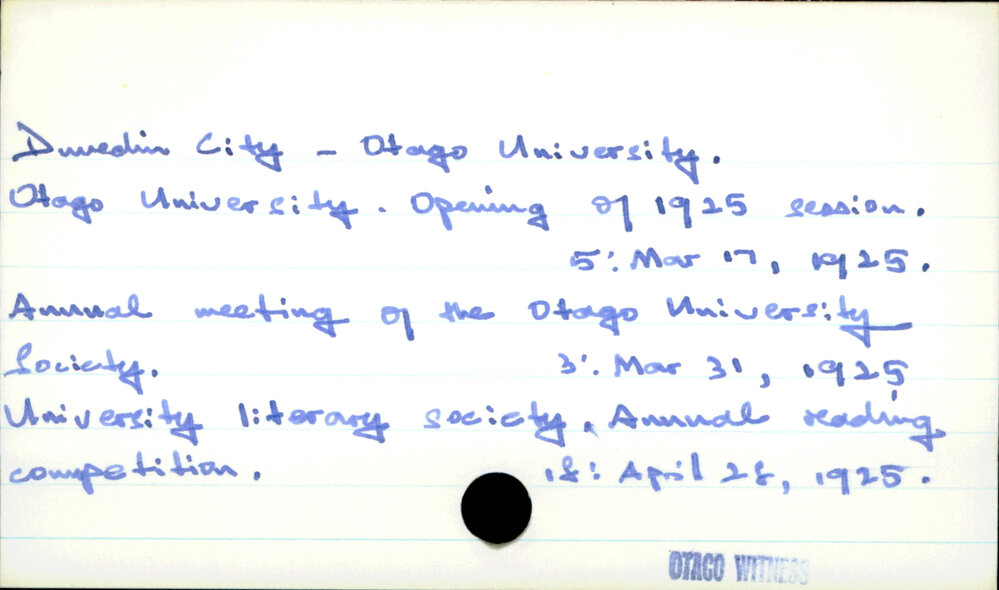 Dunedin City - Otago University.
Otago University. Opening of 1925 session.
5: Mar 17, 1925.
Annual meeting of the Otago University
Society. 3: Mar 31, 1925
University literary society. Annual reading
competition. 18: April 28, 1925.
OTAGO WITNESS